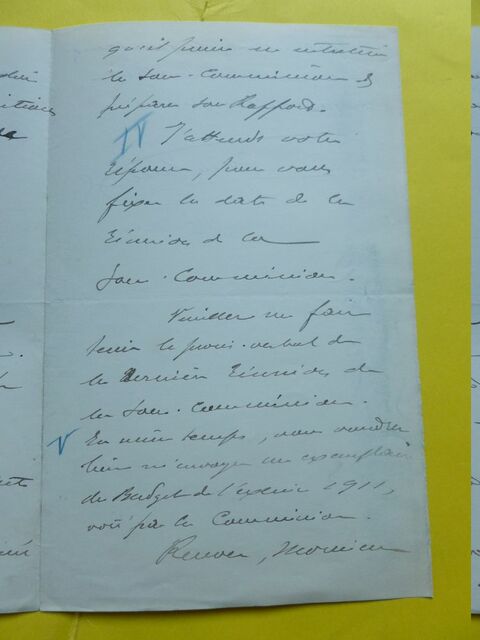 qu'il puisse en entretenir
la Sous-Commission &
préparer son Rapport.
IV J'attends votre
réponse, pour vous
fixer la date de la
Réunion de la
Sous-Commission.
Veuillez me faire
tenir le procès-verbal de
la dernière Réunion de
la Sous-Commission.
V En même temps, vous voudrez
bien m'envoyer un exemplaire
du Budget de l'exercice 1911,
voté par la Commission.
Recevez, Monsieur